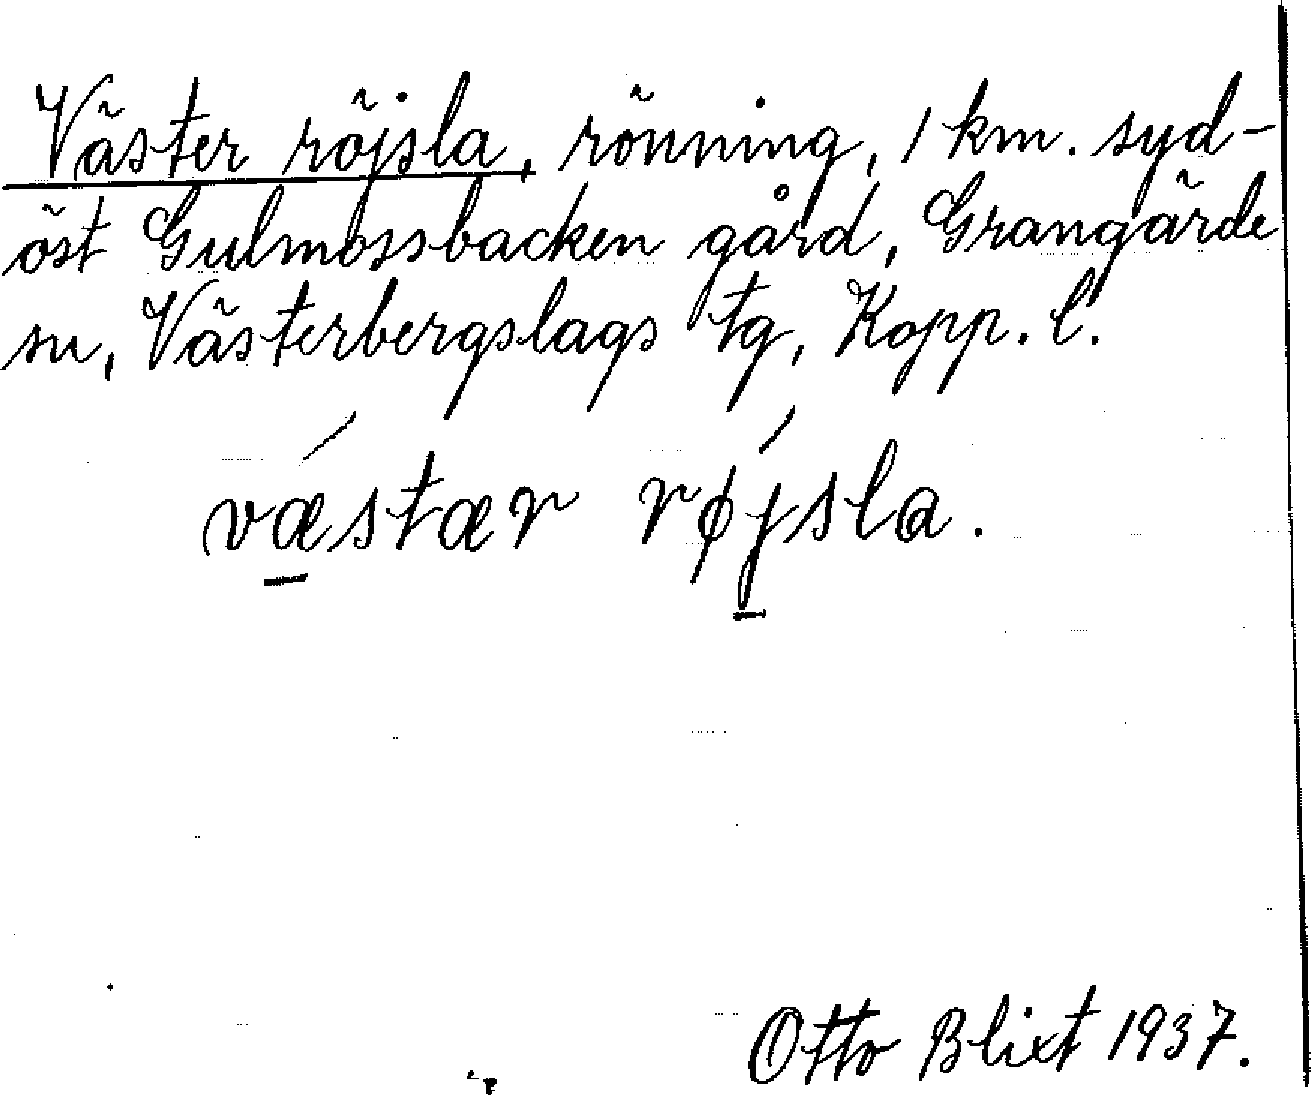 Väster röjsla, rönning, 1 km. syd-
öst Gulmossbacken gård, Grangärde
sn, Västerbergslags tg, Kopp. l.
vǽ̲stær røj̲́sla.
Otto Blixt 1937.